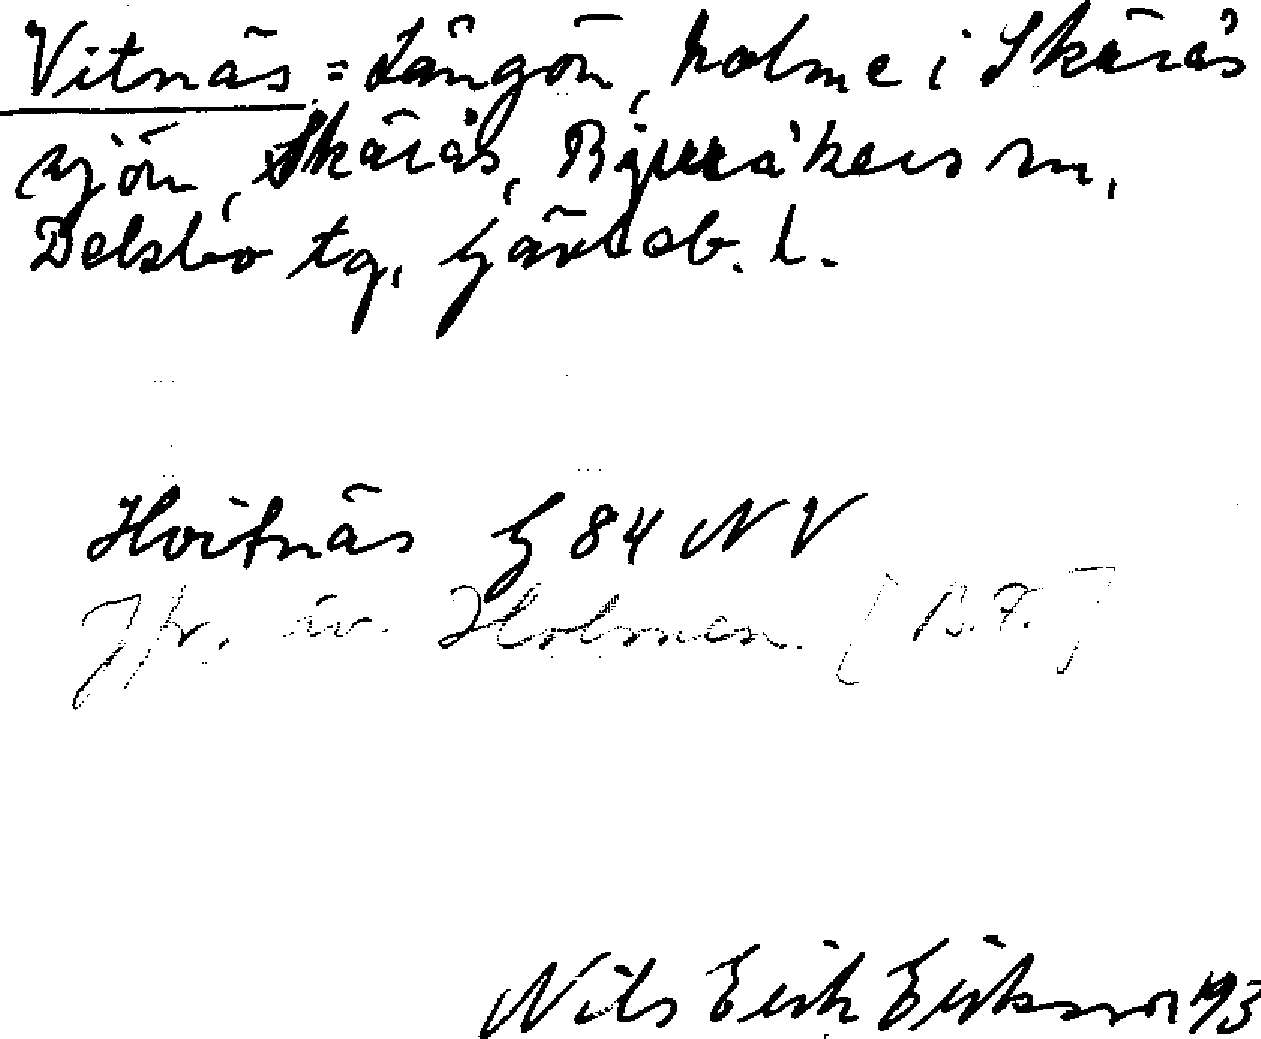 Vitnäs = Långön, holme i Skärås
sjön, Skärås, Bjuråkers sn,
Delsbo tg, Gävleb. l.
Hvitnäs G 84 NV
Jfr. äv. Holmen. [B.F.]
Nils Erik Eriksson 193